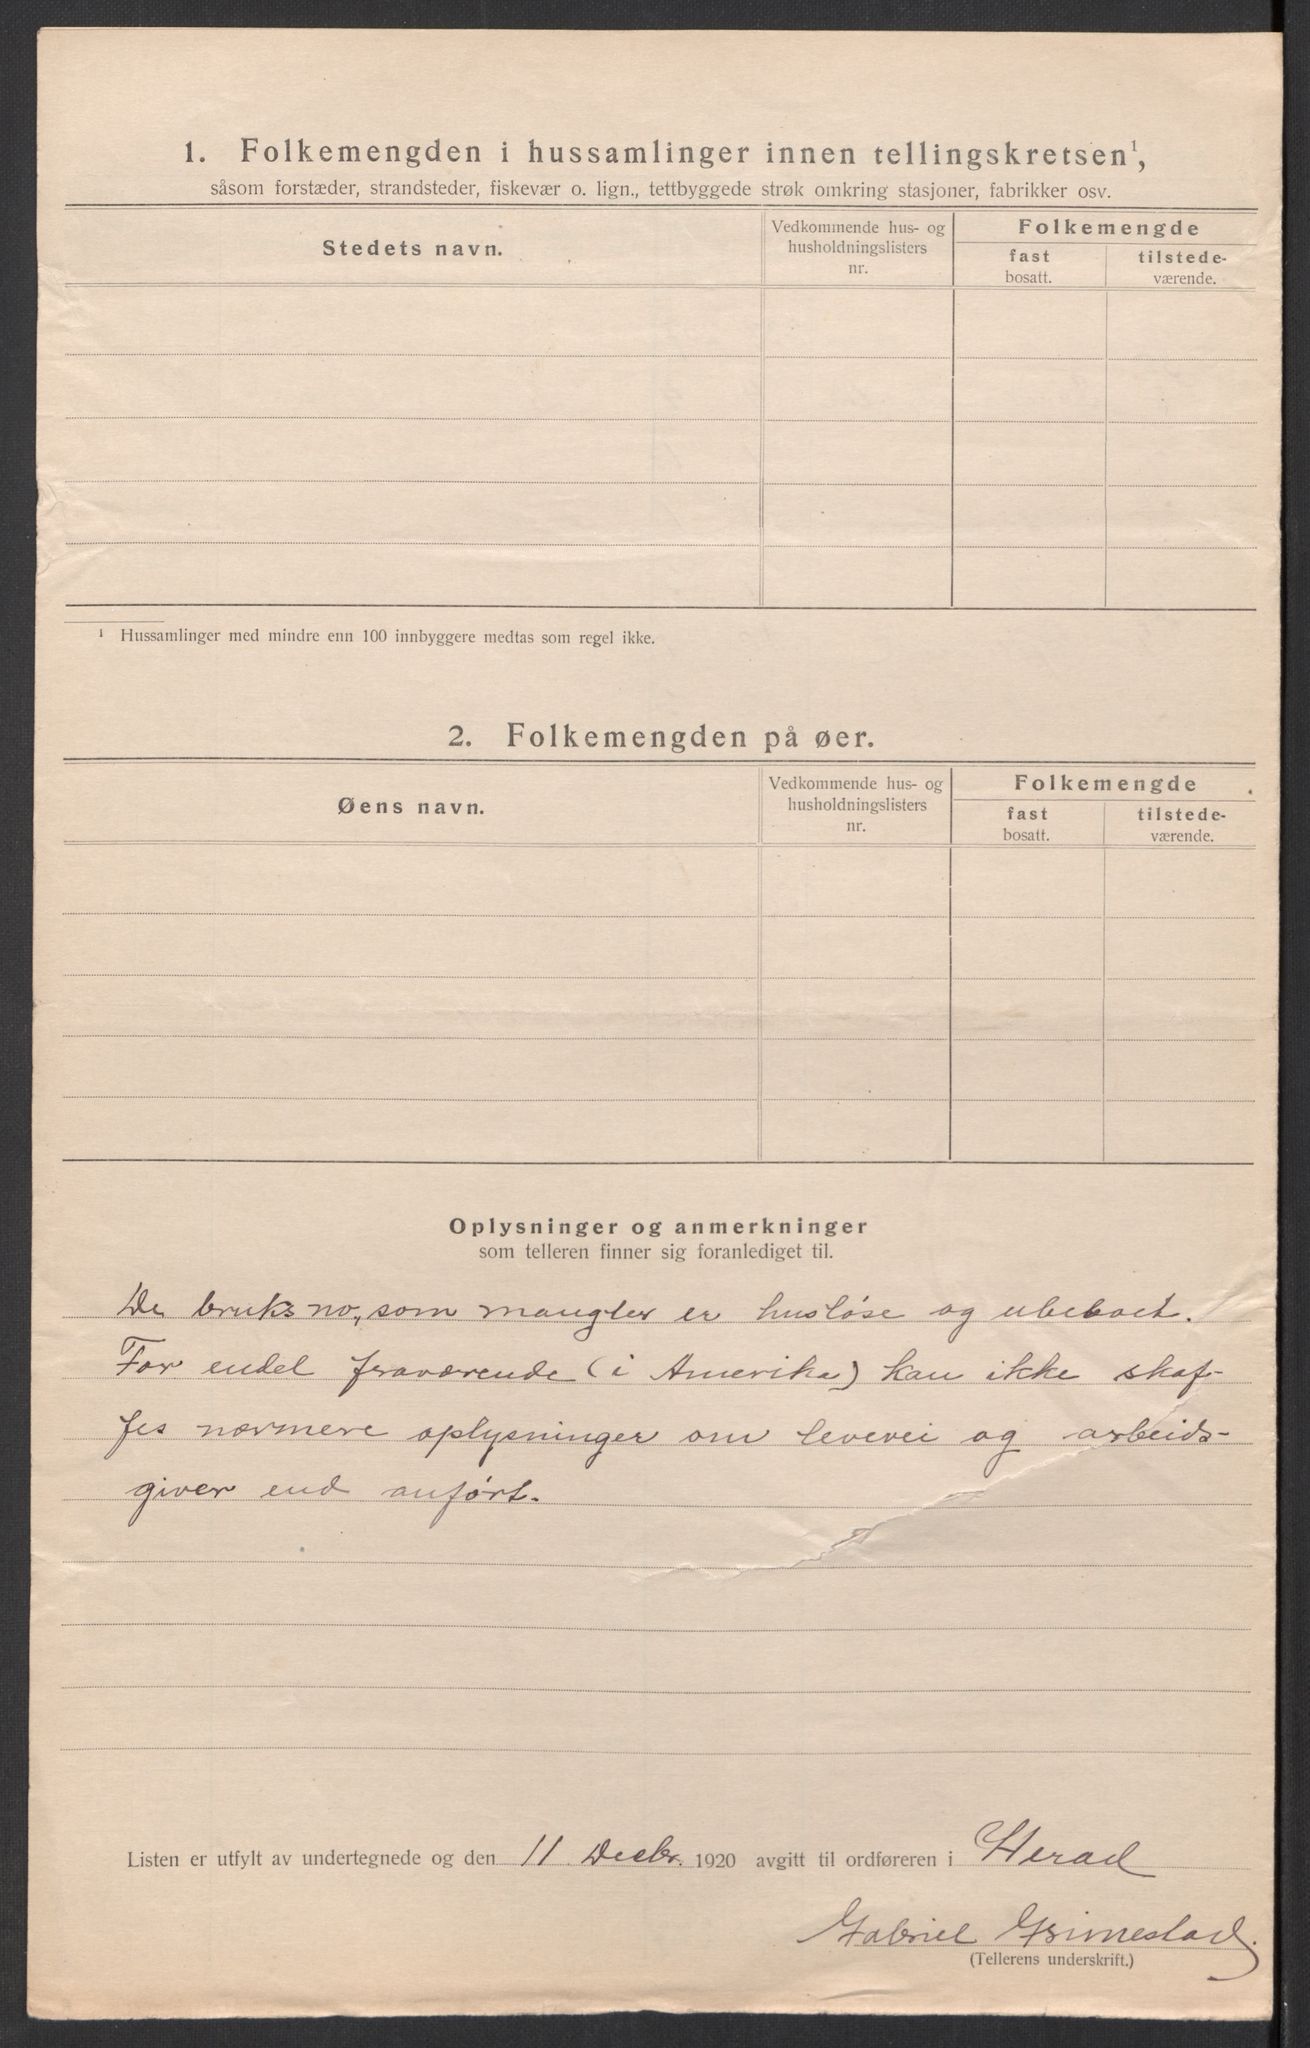 1. Folkemengden i hussamlinger innen tellingskretsen¹,
såsom forstæder, strandsteder, fiskevær o. lign., tettbyggede strøk omkring stasjoner, fabrikker osv.
Stedets navn.
Vedkommende hus- og
husholdningslisters
nr.
Folkemengde
fast
bosatt.
tilstede-
værende.
¹ Hussamlinger med mindre enn 100 innbyggere medtas som regel ikke.
2. Folkemengden på øer.
Øens navn.
Vedkommende hus- og
husholdningslisters
nr.
Folkemengde
fast
bosatt.
tilstede-
værende.
Oplysninger og anmerkninger
som telleren finner sig foranlediget til.
De bruksno, som mangler er husløse og ubeboet.
For endel fraværende (i Amerika) kan ikke skaf-
fes nærmere oplysninger om levevei og arbeids-
giver end anført.
Listen er utfylt av undertegnede og den 11 Decbr. 1920 avgitt til ordføreren i Herad
Gabriel Grimestad.
(Tellerens underskrift.)